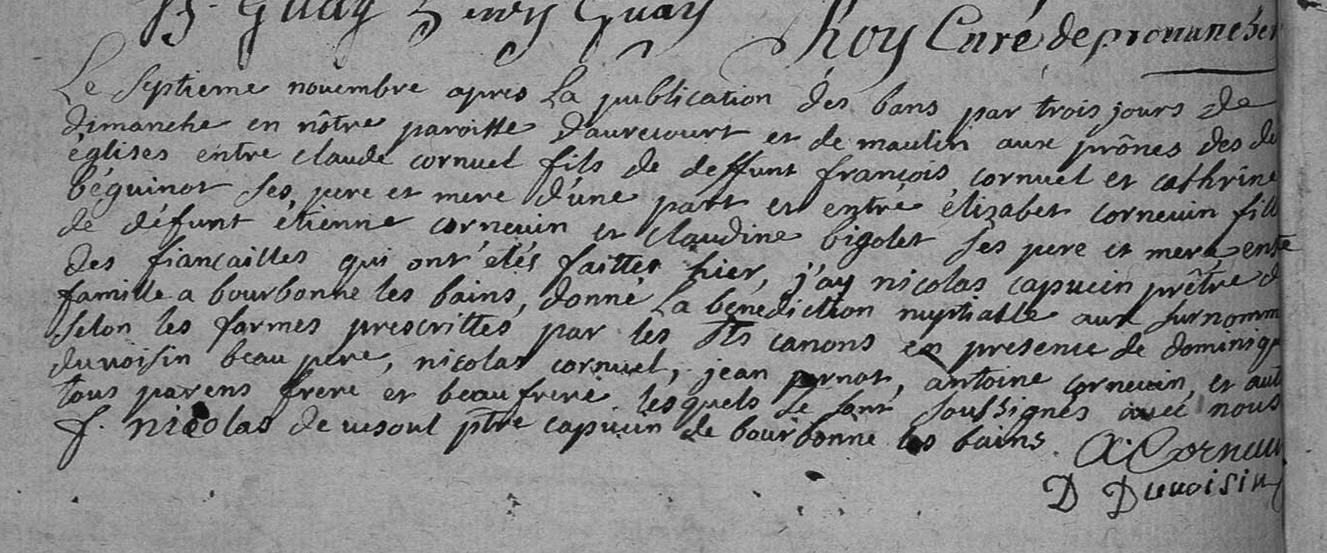 B. Guay Henry Guay
Roy Curé de pronancher
Le septieme novembre apres La publication des bans par trois jours de
dimanche en nôtre paroisse d'aurecourt et de maulin aux prônes des de
églises entre claude cornuel fils de deffunt françois cornuel et cathrine
béguinot ses pere et mere d'une part et entre élizabet cornevin fille
de défunt étienne cornevin et claudine bigolet ses pere et mere enste
des fiançailles qui ont étés faittes hier, j'ay nicolas capucin prêtre d
famille a bourbonne les bains, donné La bénédiction nuptialle aux surnomm
selon les formes prescrittes par les sts canons en presence de dominiqu
duvoisin beau pere, nicolas cornuel, jean pernot, antoine cornevin, et aut
tous parens frere et beau frere lesquels se sont soussignés avec nous
f. nicolas de vesoul ptre capucin de bourbonne les bains. A. Cornevin
D Duvoisin